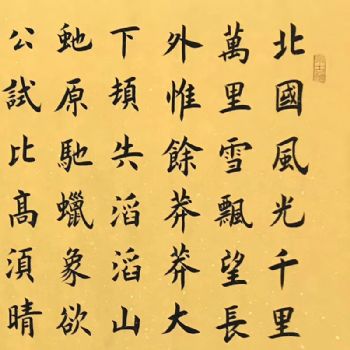 北國風光千里
萬里雪飄望長
外惟餘莽莽大
下頓失滔滔山
虵原馳蠟象欲
公試比髙湏晴